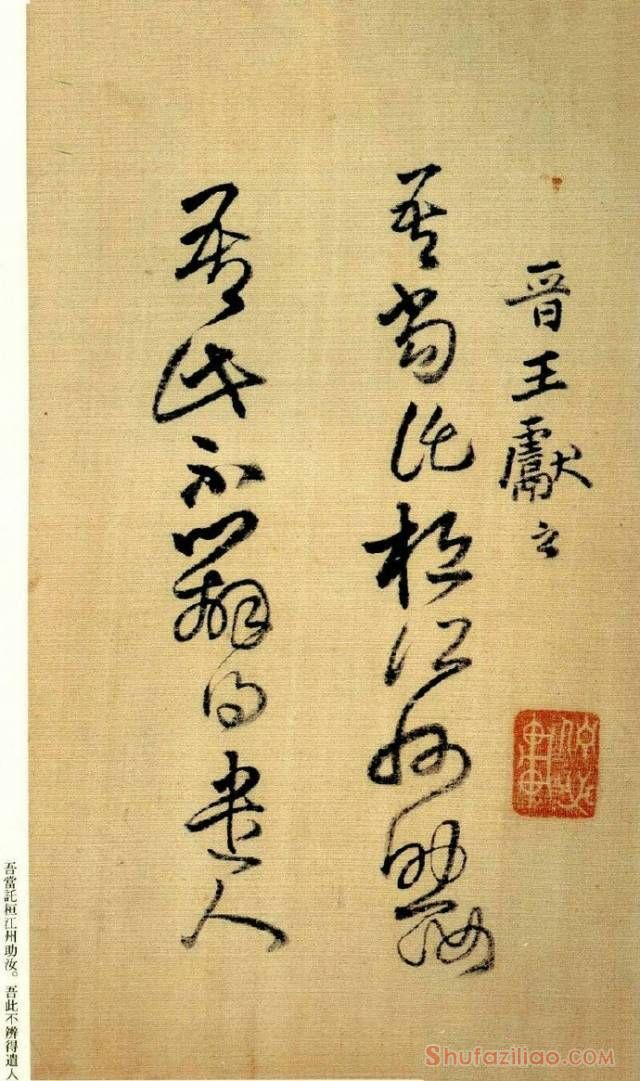 晋王獻之
吾當託桓江州助汝
吾此不辨得遣人
吾當託桓江州助汝。吾此不辨得遣人
Shufaziliao.COM